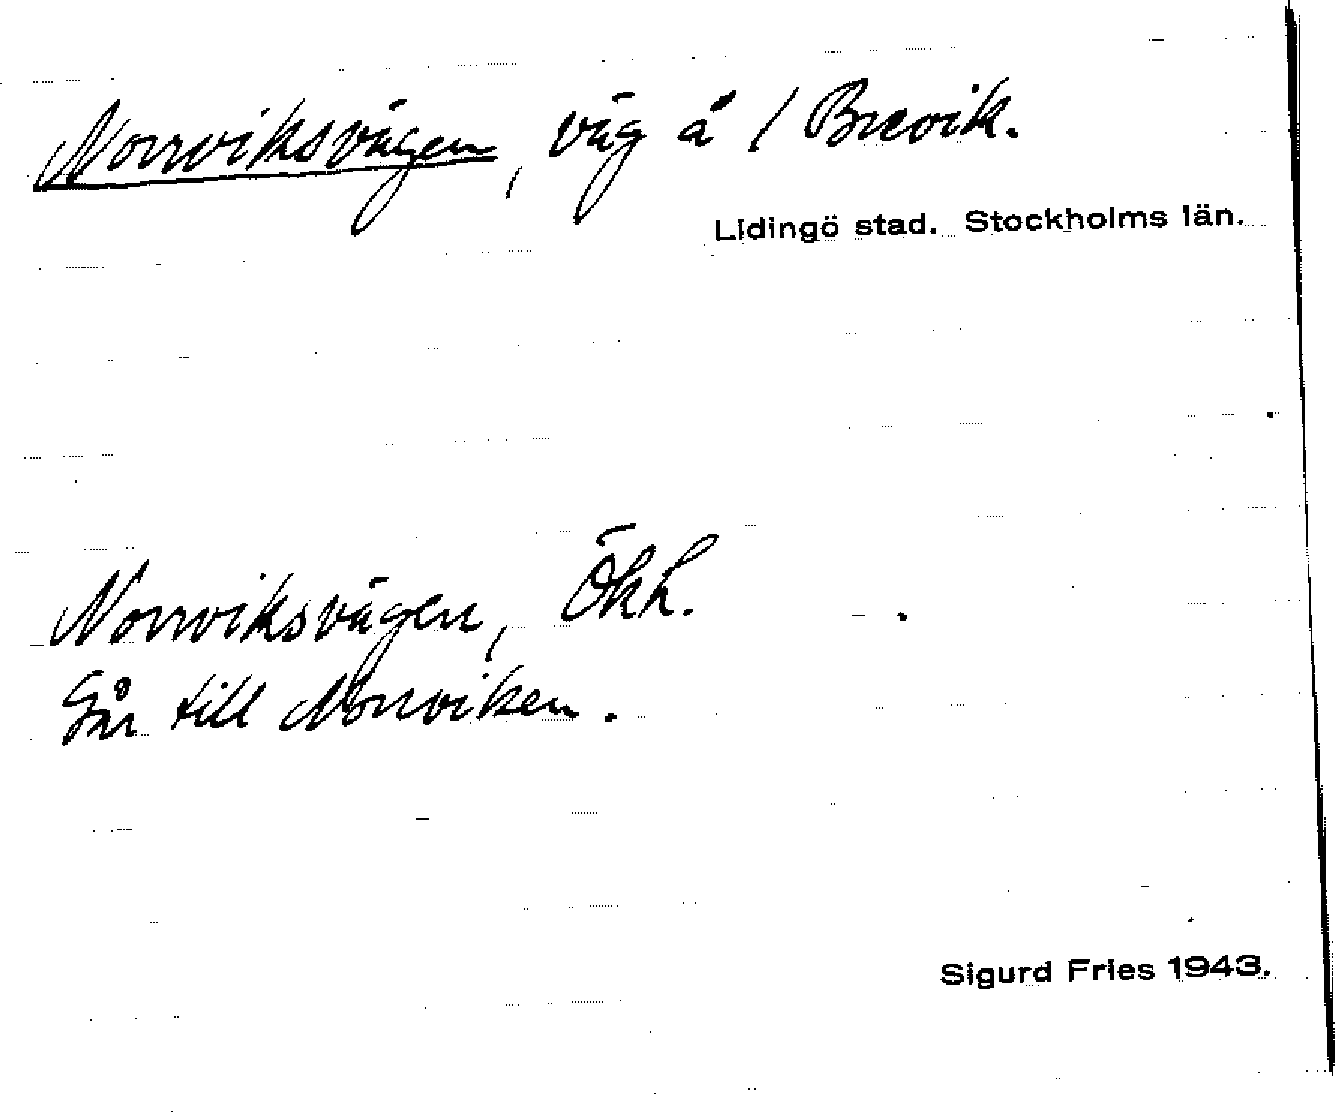 Norrviksvägen, väg å / Brevik.
Lidingö stad. Stockholms län.
Norrviksvägen, Ökh.
Går till Norrviken.
Sigurd Fries 1943.